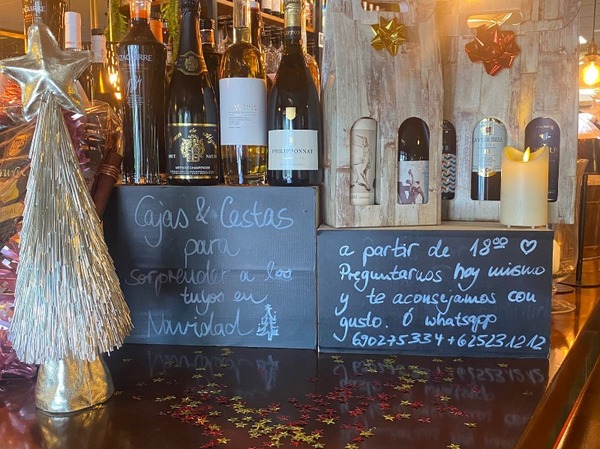 Cajas & Cestas
para
sorprender a los
tuyos en
Navidad
a partir de 18⁰⁰ ♡
Preguntarnos hoy mismo
y te aconsejamos con
gusto. Ó whatsapp
690275334 + 625231212
PHILIPPONNAT
BRUT NATURE